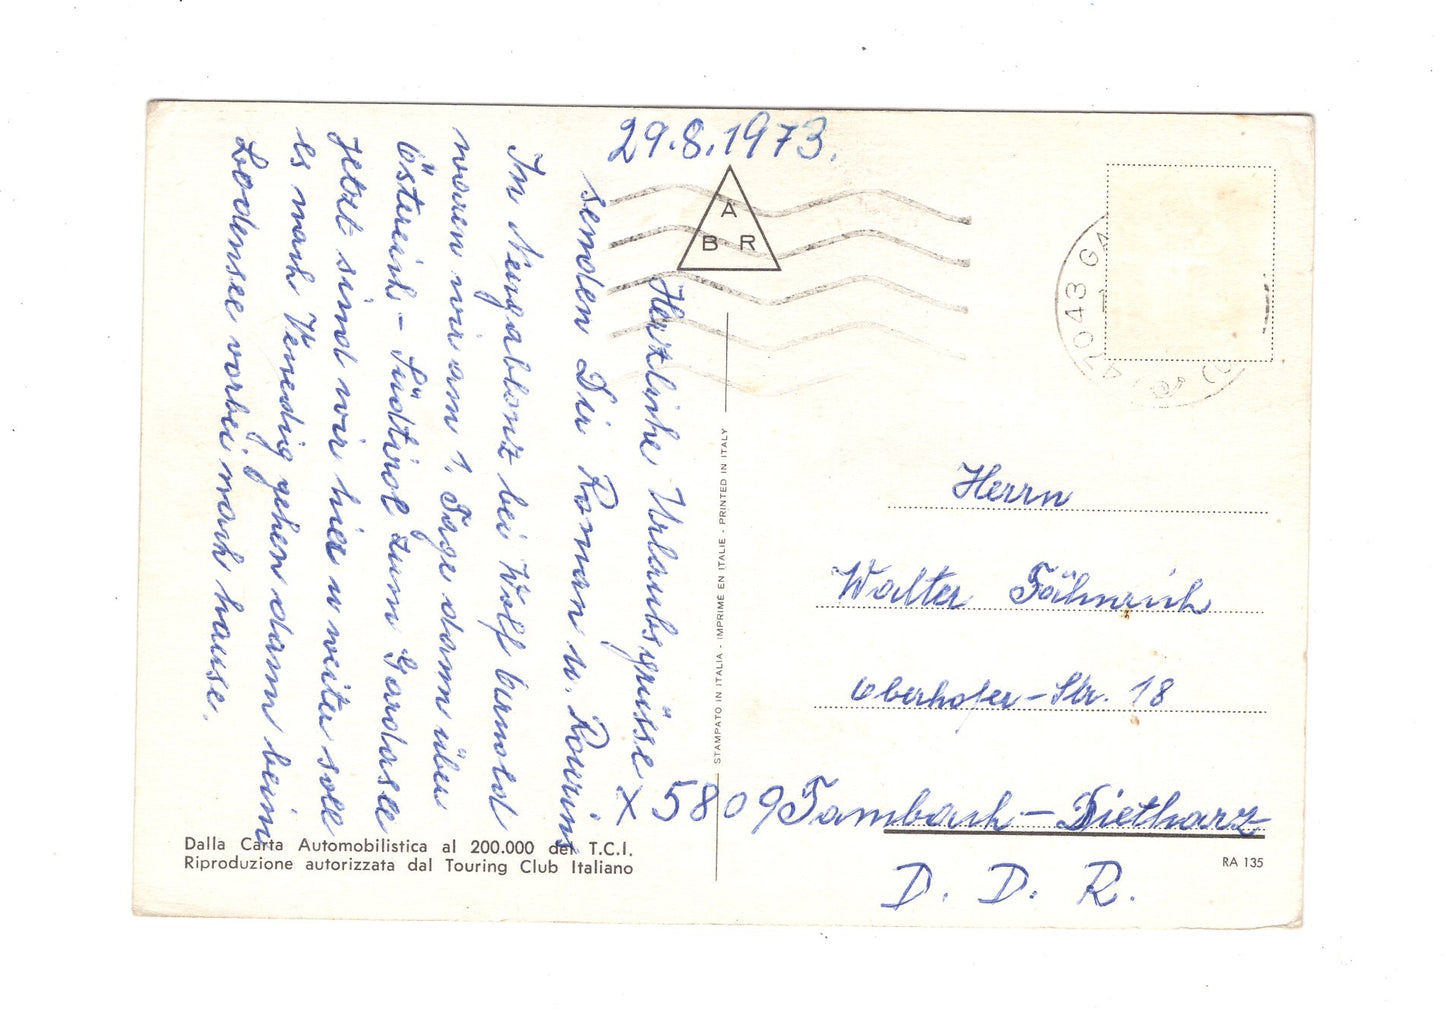 29.8.1973.
Herzliche Urlaubsgrüsse
senden Dir Roman u.
In Neugablonz bei Wolf
waren wir am 1. Tage dann über
Östereich - Südtirol zum Gardasee
Jetzt sind wir hier u weiter soll
es nach Venedig gehen dann beim
Bodensee vorbei nach hause.
A
B R
47043 GA
STAMPATO IN ITALIA - IMPRIME EN ITALIE - PRINTED IN ITALY
Herrn
Walter Fähnrich
Oberhofer-Str. 18
X 5809 Tambach-Dietharz
D. D. R.
Dalla Carta Automobilistica al 200.000 del T.C.I.
Riproduzione autorizzata dal Touring Club Italiano
RA 135